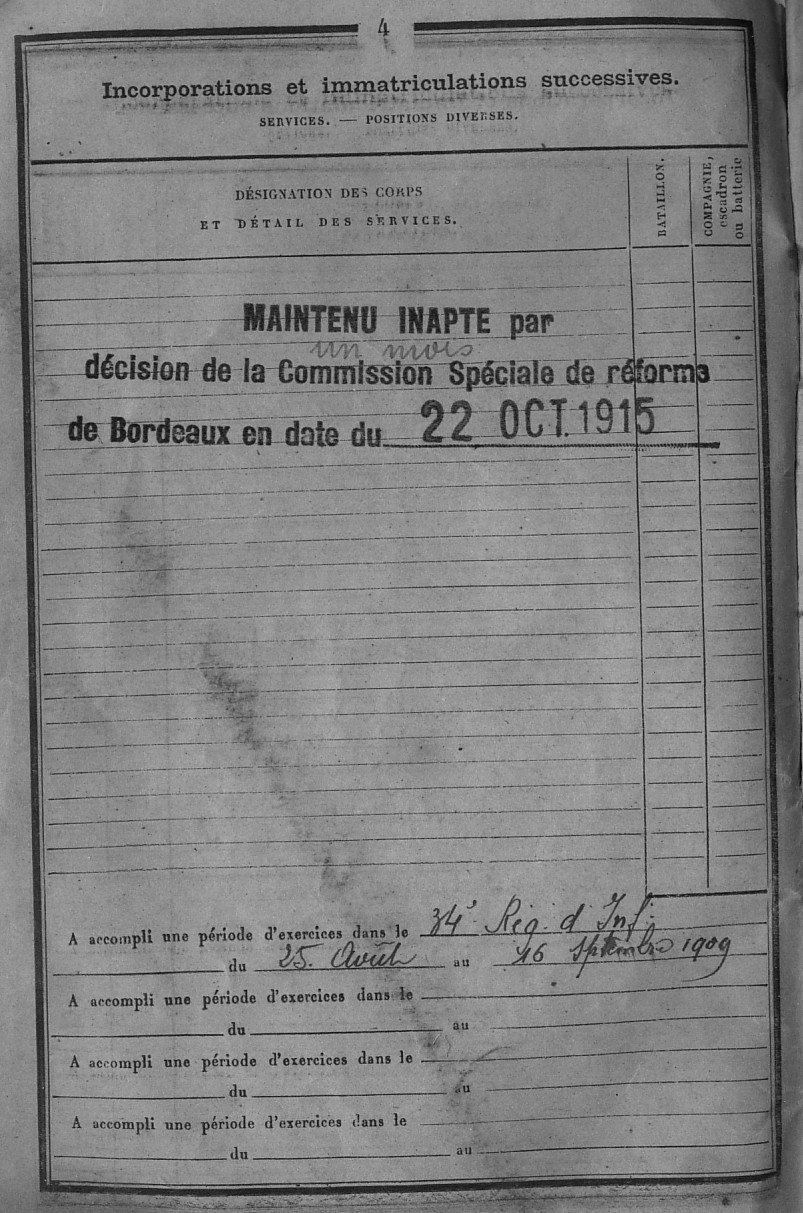 4
Incorporations et immatriculations successives.
SERVICES. — POSITIONS DIVERSES.
DÉSIGNATION DES CORPS
ET DÉTAIL DES SERVICES.
BATAILLON.
COMPAGNIE,
escadron
ou batterie
MAINTENU INAPTE par
un mois
décision de la Commission Spéciale de réforme
de Bordeaux en date du 22 OCT. 1915
A accompli une période d'exercices dans le 34e Reg. d'Inf.
du 25 Août au 16 Septembre 1909
A accompli une période d'exercices dans le
du au
A accompli une période d'exercices dans le
du au
A accompli une période d'exercices dans le
du au